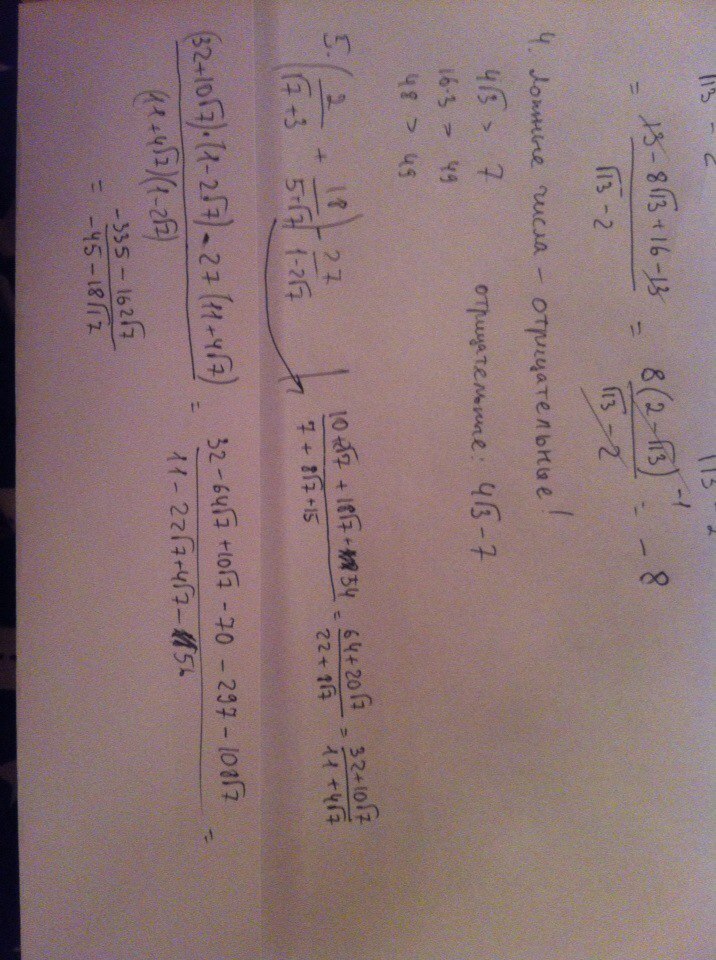 √13 - 2 √13 2
= 13 - 8√13 + 16 - 13 / √13 - 2 = 8(2 - √13)^-1 / √13 - 2 = - 8
4. Ложные числа - отрицательные!
4√3 > 7 отрицательные: 4√3 - 7
16·3 > 49
48 > 49
5. (2 / √7 + 3 + 18 / 5+√7) - 27 / 1-2√7 | 10+2√7 + 18√7 + 54 / 7 + 8√7 + 15 = 64+20√7 / 22+8√7 = 32+10√7 / 11+4√7
(32+10√7)·(1-2√7) - 27(11+4√7) / (11+4√7)(1-2√7) = 32 - 64√7 + 10√7 - 70 - 297 - 108√7 / 11 - 22√7 + 4√7 - 54 =
= -335 - 162√7 / -45 - 18√7